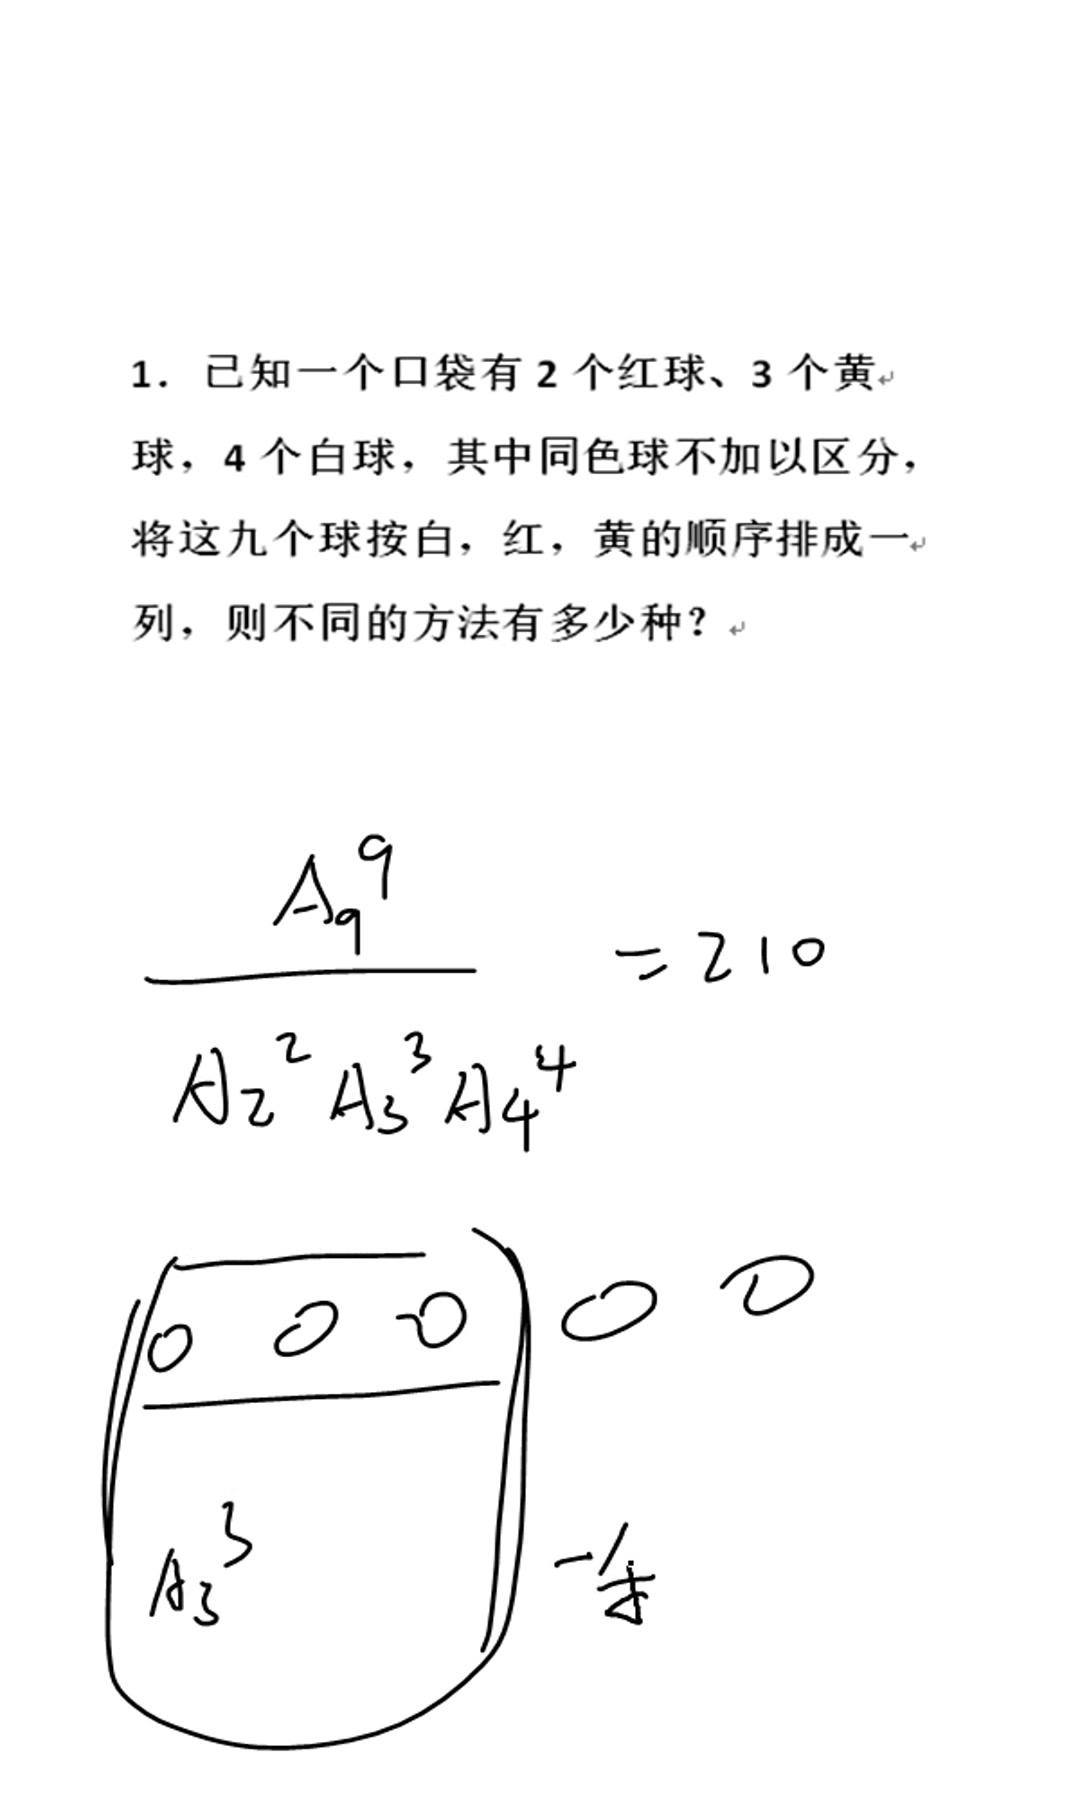 1. 已知一个口袋有 2 个红球、3 个黄
球，4 个白球，其中同色球不加以区分，
将这九个球按白，红，黄的顺序排成一
列，则不同的方法有多少种？
A₉⁹
= 210
A₂² A₃³ A₄⁴
A₃³